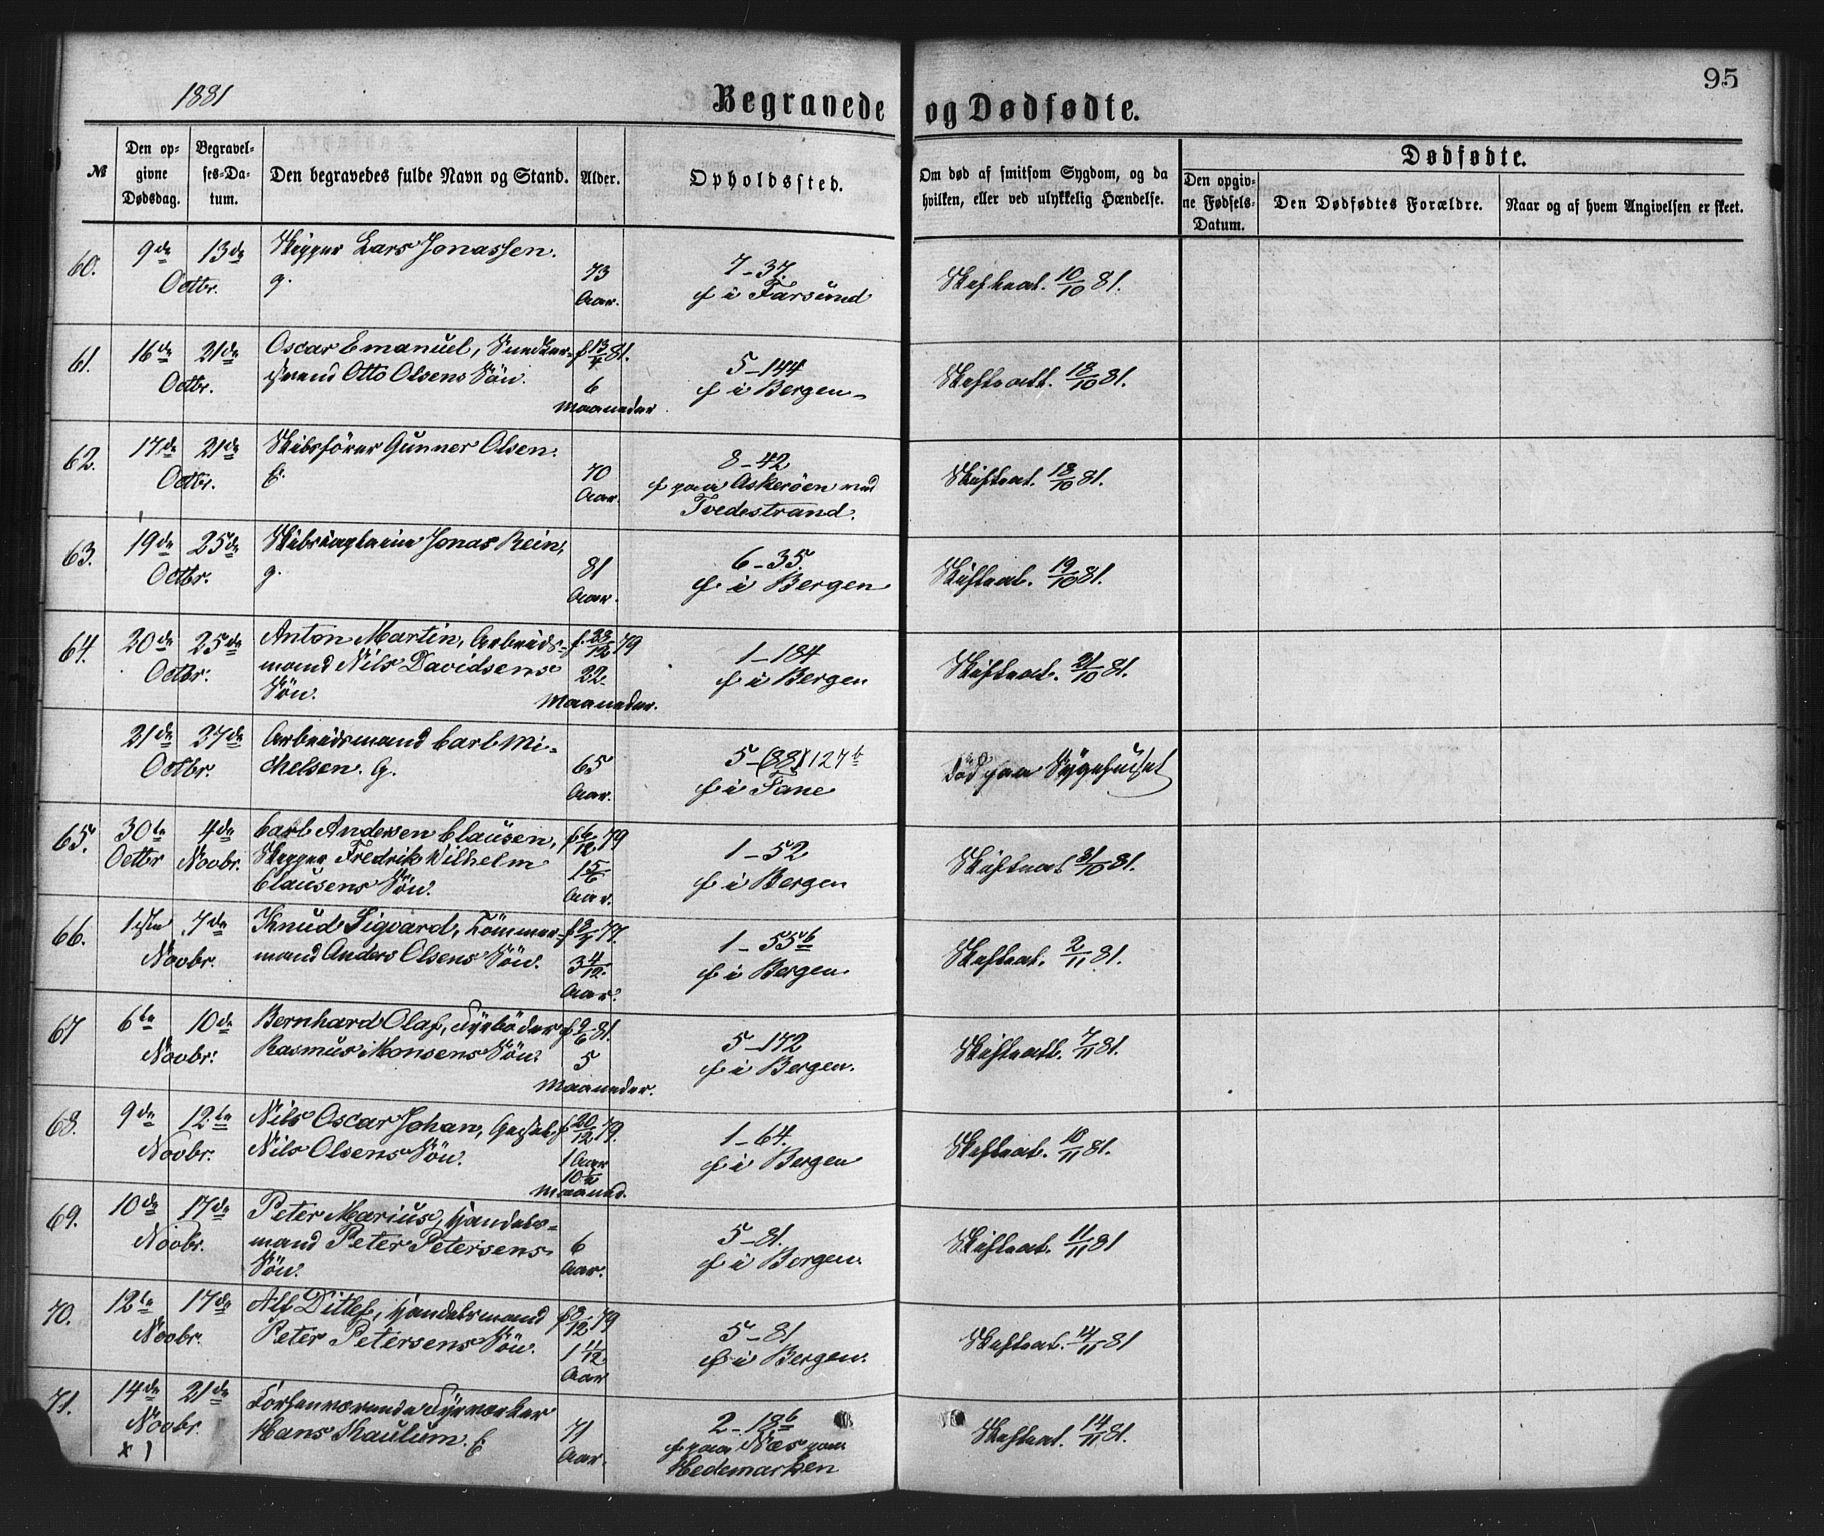 1881
Begravede og Dødfødte.
95
№
Den opgivne Dødsdag.
Begravelses-Datum.
Den begravedes fulde Navn og Stand.
Alder.
Opholdssted.
Om død af smitsom Sygdom, og da hvilken, eller ved ulykkelig Hændelse.
Dødfødte.
Den opgivne Fødsels-Datum.
Den Dødfødtes Forældre.
Naar og af hvem Angivelsen er skeet.
60. 9de 13de Octbr. Skipper Lars Jonassen. g. 73 Aar. 7-37. f i Farsund Skifteat. 10/10 81.
61. 16de 21de Octbr. Oscar Emanuel, Snedker-
svend Otto Olsens Søn. f 13/4 81. 6 Maaneder 5-144 f i Bergen Skifteatt. 18/10 81.
62. 17de 21de Octbr. Skibsfører Gunner Olsen. E. 70 Aar. 8-42 f paa Askerøen ved
Tvedestrand. Skifteat. 18/10 81.
63. 19de 25de Octbr. Skibscaptein Jonas Rein, g. 81 Aar. 6-35. f i Bergen Skifteat. 19/10 81.
64. 20de 25de Octbr. Anton Martin, Arbeids-
mand Nils Davidsens
Søn. f. 23/12 79 22 Maaneder. 1-184 f i Bergen Skifteat. 21/10 81.
21de 27de Octbr. Arbeidsmand Carl Mi-
chelsen. G. 65 Aar. 5-(88) 127b f i Fane død paa Sygehuset
65. 30te Octbr 4de Novbr. Carl Andersen Clausen,
Skipper Fredrik Wilhelm
Clausens Søn. f 6/12 79 1 5/6 Aar. 1-52 f i Bergen Skifteat 31/10 81.
66. 1ste 7de Novbr. Knud Sigvard, Tømmer-
mand Anders Olsens Søn. 3 4/12 Aar. 1-55b f i Bergen. Skifteat. 2/11 81.
67 6te 10de Novbr. Bernhard Olaf, Fyrbøder
Rasmus Monsens Søn. f 9/6 81. 5 Maaneder. 5-172 f i Bergen. Skifteatt. 7/11 81.
68. 9de 12te Novbr. Nils Oscar Johan,
Nils Olsens Søn. f 20/12 79. 1 Aar 10½ Maaned. 1-64. f i Bergen Skifteat. 10/11 81.
69. 10de 17de Novbr. Peter Marius, Handels-
mand Peter Petersens
Søn. 6 Aar. 5-81. f i Bergen. Skifteat. 11/11 81
70. 12te 17de Novbr. Alf Ditlef, Handelsmand
Peter Petersens Søn. f 3/12 79 1 11/12 Aar 5-81 f i Bergen. Skifteat. 14/11 81
71. 14de 21de Novbr. Forhenværende Fyrværker
Hans Skaulum. E 71 Aar. 2-18b f paa Næs paa
Hedemarken Skifteat. 14/11 81.
x 1